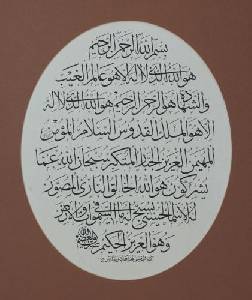 بسم الله الرحمن الرحيم
هو الله الذي لا إله إلا هو عالم الغيب
والشهادة هو الرحمن الرحيم هو الله الذي لا إله
إلا هو الملك القدوس السلام المؤمن
المهيمن العزيز الجبار المتكبر سبحان الله عما
يشركون هو الله الخالق البارئ المصور
له الأسماء الحسنى يسبح له ما في السموات والأرض
وهو العزيز الحكيم